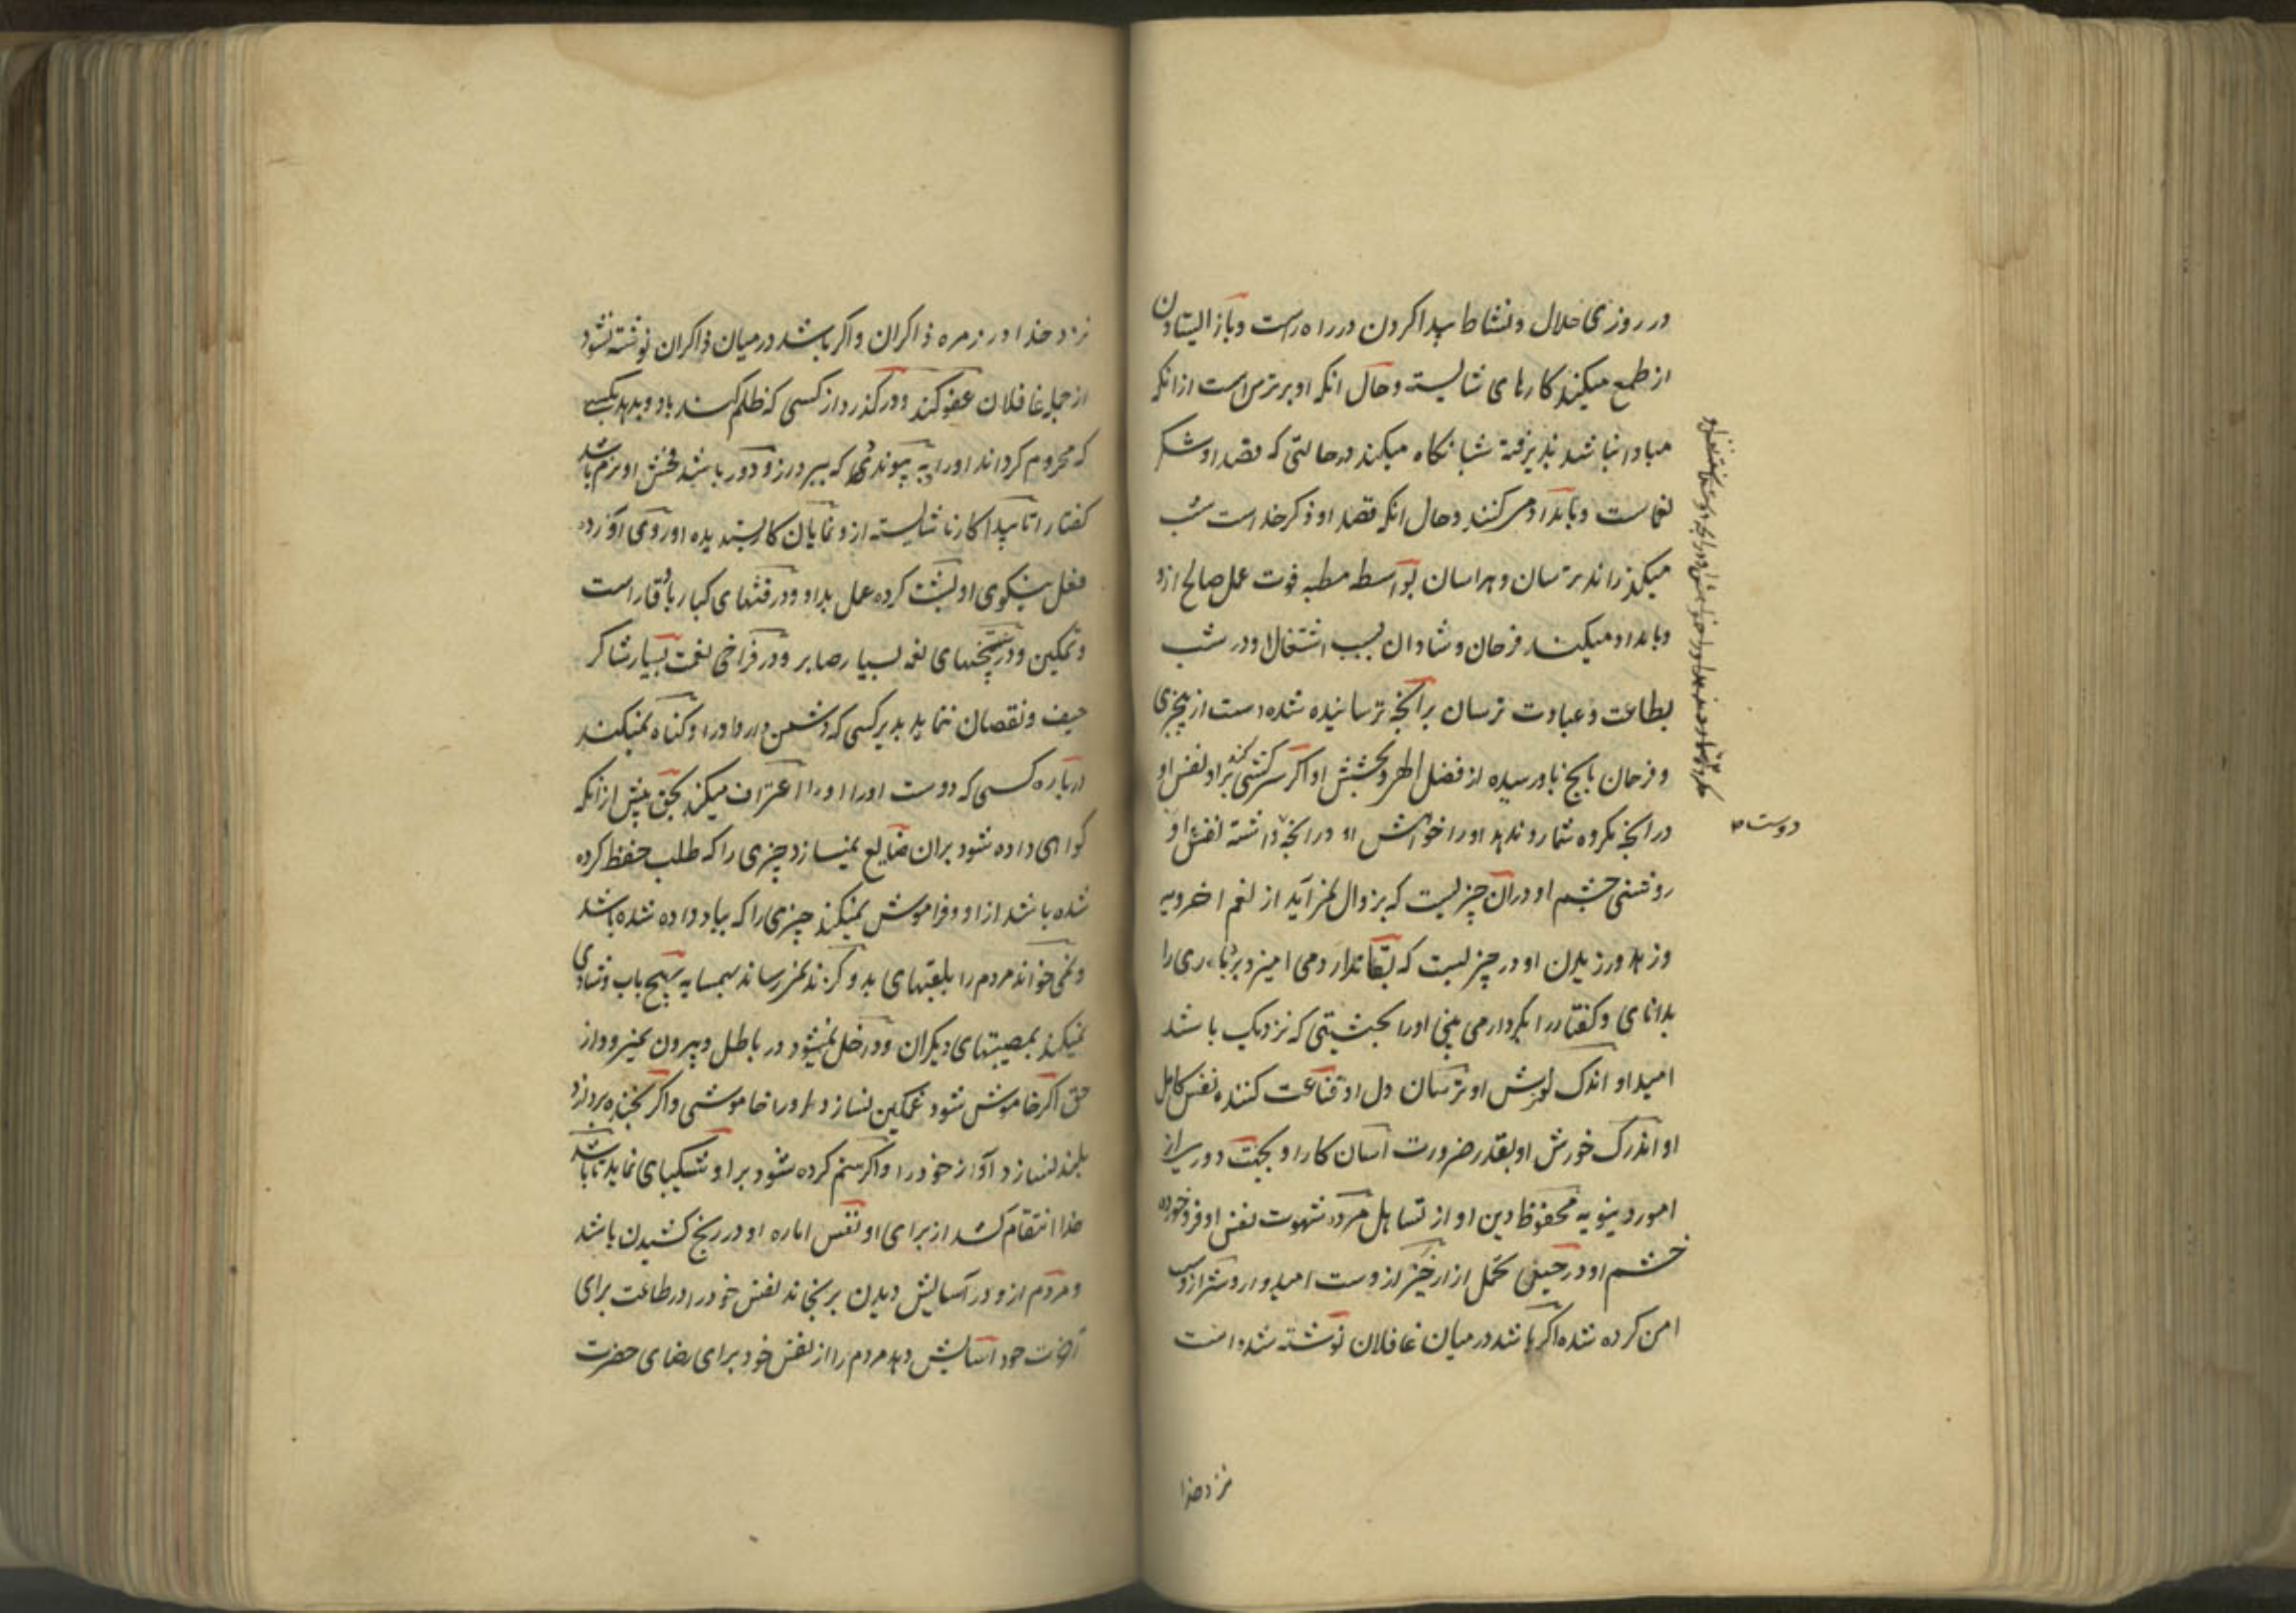 در روزی حلال و نشاط پیدا کردن در راه راست و باز ایستادن
از طمع میکند کارهای شایسته و حال انکه او بر ترس است از انکه
مبادا نباشد پذیرفته شبانگاه میکند در حالتی که قصد او شکر
نعماست و بامداد می کنند و حال انکه قصد او ذکر خداست شب
میگذراند ترسان و هراسان بواسطه مظنه فوت عمل صالح ازو
و بامداد میکند فرحان و شادان بسبب اشتغال او در شب
بطاعت و عبادت ترسان برانچه ترسانیده شده است از بیخبری
و فرحان بانچ باو رسیده از فضل الهی و بخشش او اکر سرکشی کند براو نفس او
در انچه مکروه شمارد ندهد او را خواهش او در انچه داشته نفس او
دوست
روشنی چشم او در ان چیزیست که بزوال نمی آید از نعم اخرویه
و زهد ورزیدن او در چیزیست که بقا ندارد می امیزد بردباری را
بدانای و کفتار را بکردار می بینی او را بحیثیتی که نزدیک باشد
امید او اندک لغزش او ترسان دل او قناعت کننده نفس کامل
او اندک خورش او بقدر ضرورت اسان کار او بجهت دوری از
امور دنیویه محفوظ دین او از تساهل مرده شهوت نفس او فرو خورده
خشم او در حین تحمل ازار خیر ازوست امیدوار و شر ازوست
امن کرده شده اکر باشد در میان غافلان نوشته شده است
نزد خدا
نزد خدا در زمره ذاکران و اکر باشد در میان ذاکران نوشته نشود
از جمله غافلان عفو کند و در کذرد از کسی که ظلم کند باو و بدهد بکسی
که محروم کرداند او را به پیوندد که ببرد ازو و دور باشد فحش او نرم باشد
کفتار اتا پیدا کار ناشایسته ازو نمایان کار پسندیده او روی آورده
فعل نیکوی او پشت کرده عمل بد او و در فتنهای کبار با وقار است
و تمکین و در سختیهای نغه بسیار صابر و در فراخی نعمت بسیار شاکر
حیف و نقصان ننماید بدیر کسی که دشمن دارد او را و کناه نمیکند
درباره کسی که دوست او را اعتراف میکند بحق پیش از انکه
کواهی داده شود بران ضایع نمیسازد چیزی را که طلب حفظ کرده
شده باشد از او و فراموش نمیکند چیزی را که بیاد داده شده باشد
و نمی خواند مردم را بلقبهای بد و کزند نمیرساند بهمسایه بهیچ باب و شادی
نمیکند بمصیبتهای دیکران و داخل نمیشود در باطل و بیرون نمیرود از
حق اکر خاموش شود غمکین نسازد او را خاموشی و اکر بخنده پردازد
بلند نسازد آواز خود را و اکر ستم کرده شود براو شکیبای نماید تا باشد
خدا انتقام کشد از برای او نفس اماره او در رنج کشیدن باشد
و مردم ازو در آسایش دیدن برنجاند نفس خود را در طاعت برای
آخرت خود آسایش دهد مردم را از نفس خود برای رضای حضرت